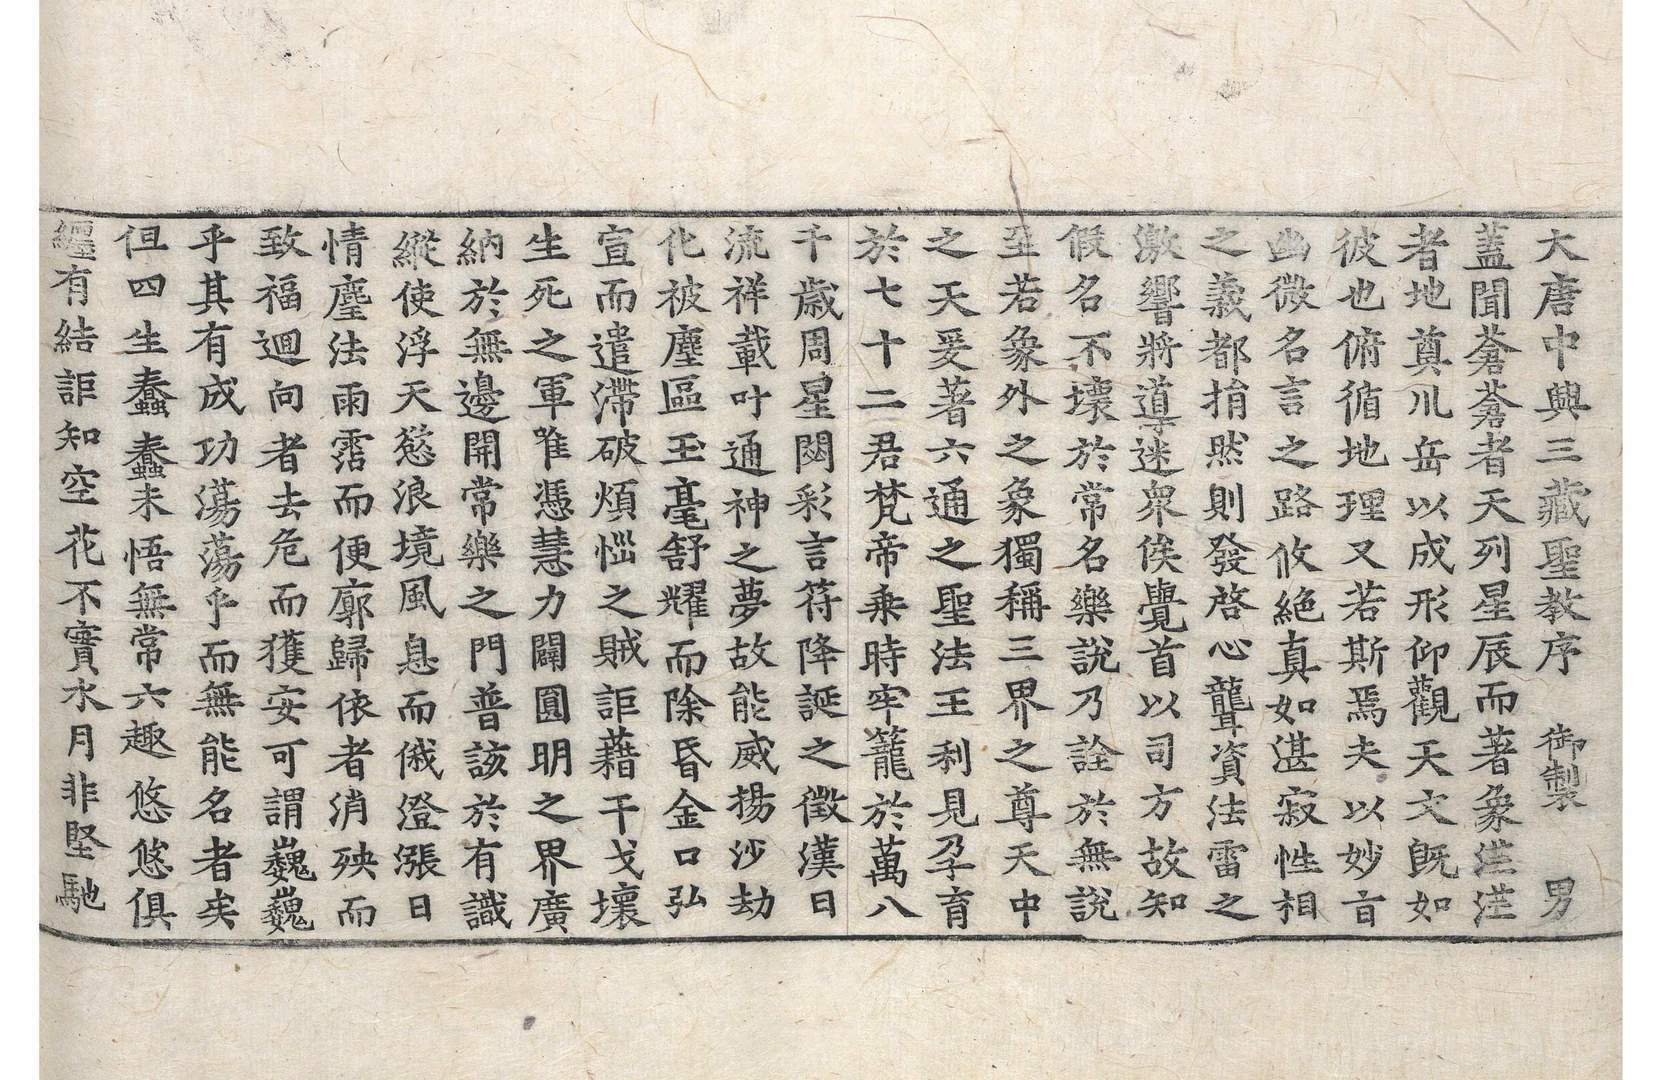 大唐中興三藏聖教序 御製 男
蓋聞蒼蒼者天列星辰而著象茫茫
者地奠川岳以成形仰觀天文旣如
彼也俯循地理又若斯焉夫以妙旨
幽微名言之路攸絶真如湛寂性相
之義都捐然則發啓心聾資法雷之
激響將導迷衆俟覺首以司方故知
假名不壞於常名樂說乃詮於無說
至若象外之象獨稱三界之尊天中
之天爰著六通之聖法王利見孕育
於七十二君梵帝乗時牢籠於萬八
千歲周星閟彩言符降誕之徵漢日
流祥載叶通神之夢故能威揚沙劫
化被塵區玉毫舒耀而除昏金口弘
宣而遣滯破煩惱之賊詎藉干戈壞
生死之軍唯憑慧力闢圓明之界廣
納於無邊開常樂之門普該於有識
縱使浮天慾浪境風息而俄澄漲日
情塵法雨霑而便廓歸依者消殃而
致福迴向者去危而獲安可謂巍巍
乎其有成功蕩蕩乎而無能名者矣
但四生蠢蠢未悟無常六趣悠悠俱
纏有結詎知空花不實水月非堅馳